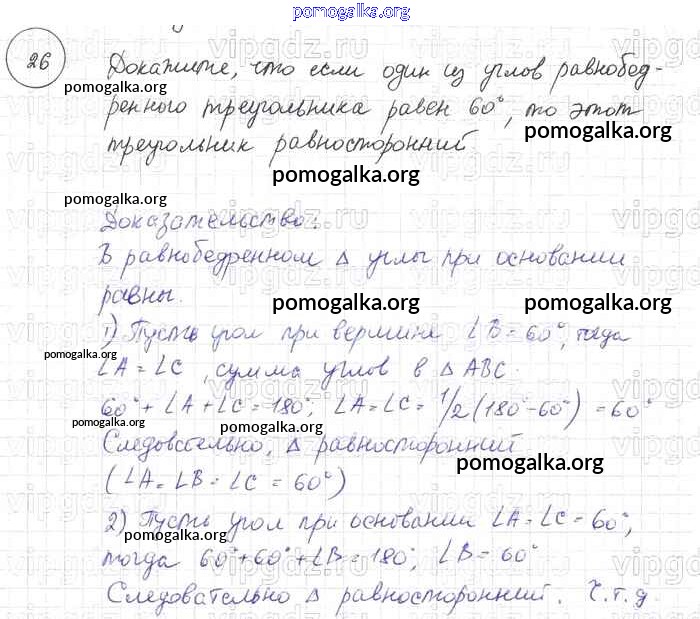 pomogalka.org
26
Докажите, что если один из углов равнобед-
pomogalka.org
ренного треугольника равен 60°, то этот
pomogalka.org
треугольник равносторонний
pomogalka.org
pomogalka.org
Доказательство:
В равнобедренном Δ углы при основании
равны.
pomogalka.org
1) Пусть угол при вершине ∠B = 60°, тогда
pomogalka.org
∠A = ∠C, сумма углов в Δ ABC
60° + ∠A + ∠C = 180°; ∠A = ∠C = 1/2 (180° - 60°) = 60°
pomogalka.org
Следовательно, Δ равносторонний
pomogalka.org
(∠A = ∠B = ∠C = 60°)
2) Пусть угол при основании ∠A = ∠C = 60°,
pomogalka.org
тогда 60° + 60° + ∠B = 180°; ∠B = 60°
pomogalka.org
Следовательно Δ равносторонний. Ч.т.д.